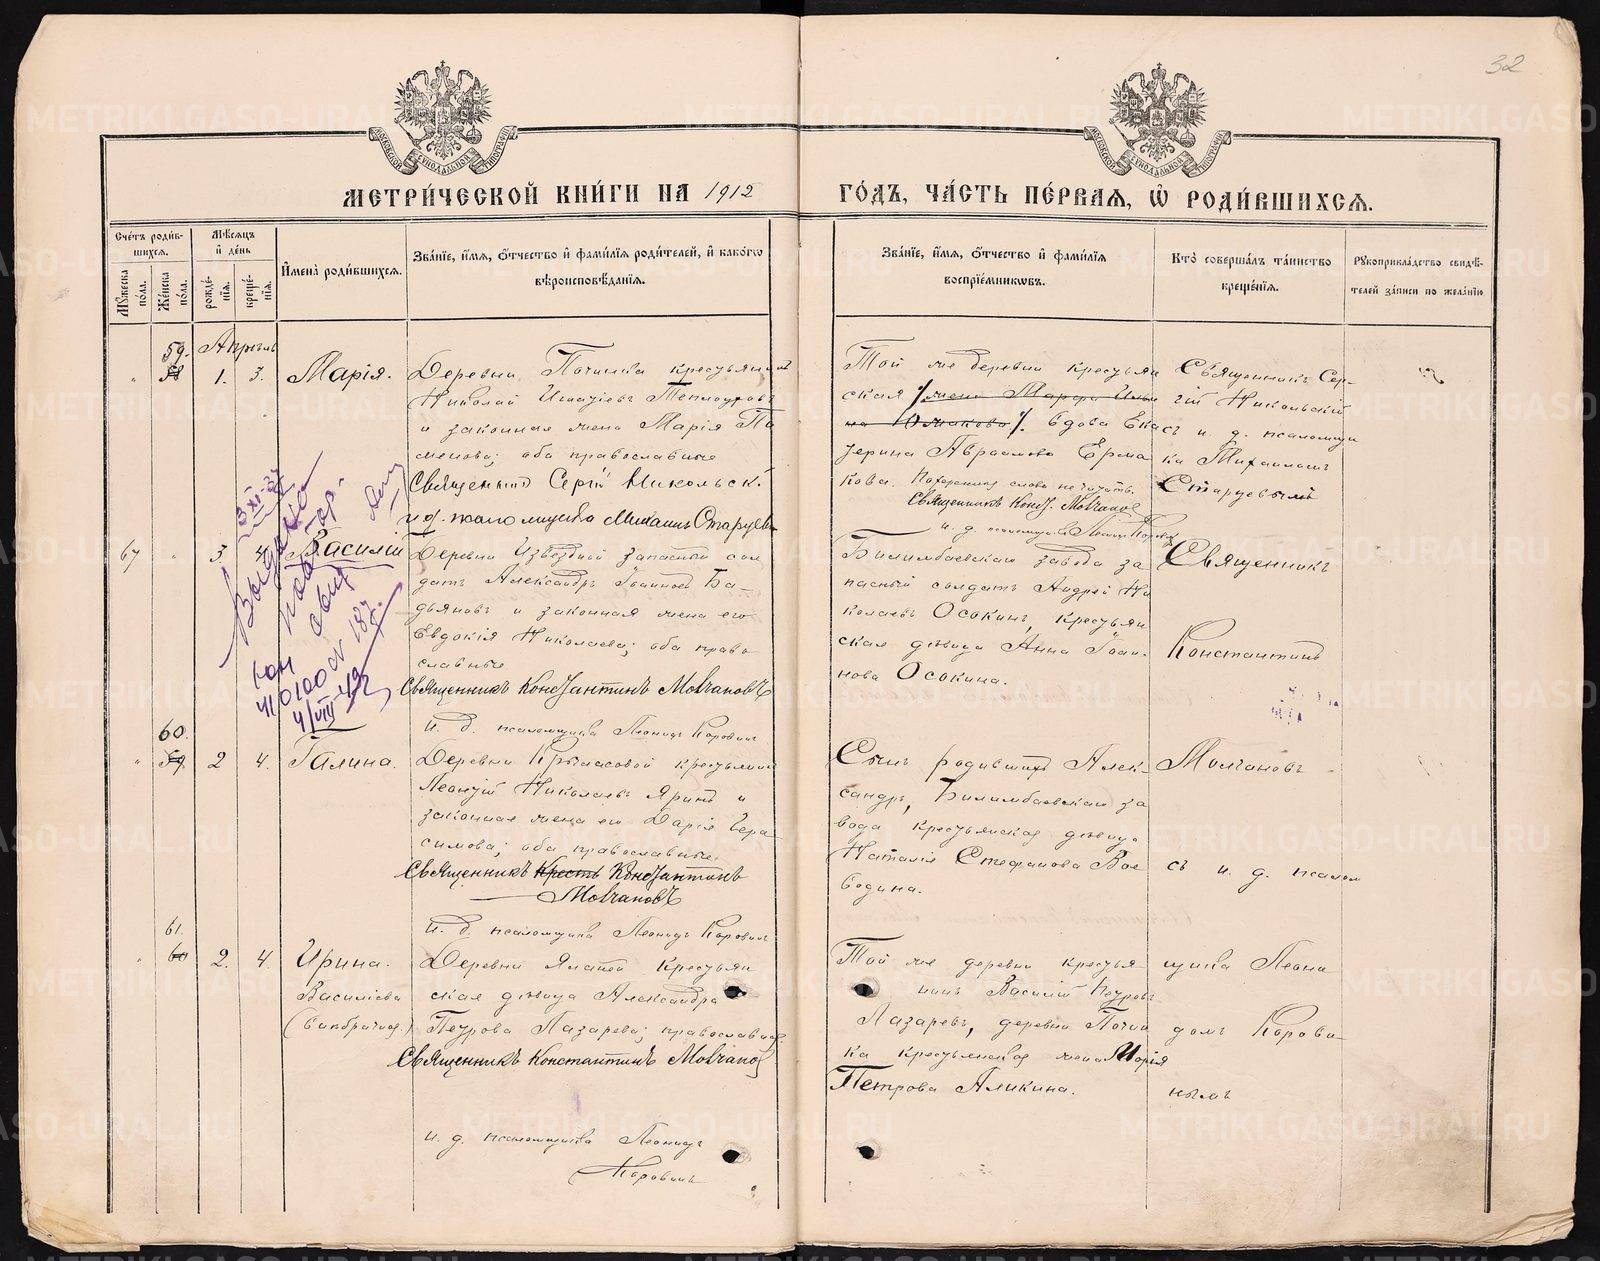 32
МЕТРИ́ЧЕСКОЙ КНИ́ГИ НА 1912
ГО́ДЪ, ЧА́СТЬ ПЕ́РВАЯ, Ѽ РОДИ́ВШИХСЯ.
Сче́тъ роди́в-
шихся.
Мѣ́сяцъ
и҆ де́нь
Мꙋ́жеска
по́ла.
Же́нска
по́ла.
рожде́-
нїѧ.
креще́-
нїѧ.
И҆мена̀ роди́вшихсѧ.
Зва́нїе, и҆́мѧ, ѻ҆́тчество и҆ фами́лїѧ роди́телей, и҆ како́гѡ
вѣроисповѣ́данїѧ.
Зва́нїе, и҆́мѧ, ѻ҆́тчество и҆ фами́лїѧ
воспрїе́мникѡвъ.
Кто̀ соверша́лъ та́инство
креще́нїѧ.
Рꙋкоприкла́дство свидѣ́-
телей за́писи по жела́нїю
59.
58
Апрѣль
1. 3.
Марія.
Деревни Починка крестьянинъ
Николай
и законная жена Марія
оба православные
Священникъ Сергій Никольск.
и.д. псаломщика Михаилъ Старцевъ
Той же деревни крестьян
ская /жена Марѳа Ильи
на Юшкова/. вдова Ека
терина Авраамова Ерма
кова. Похеренныя слова не читать.
Священникъ Конст. Молчановъ
и. д. псаломщика Леонидъ Коровинъ
Священникъ Сер-
гій Никольскій
съ и. д. псаломщи
ка Михаиломъ
Старцевымъ
67
3 4
Василій
Деревни Извѣздной запасный сол
датъ Александръ Іоанновъ Ба-
дьяновъ и законная жена его
Евдокія Николаева; оба право
славные
Священникъ Константинъ Молчановъ
И. д. псаломщика Леонидъ Коровинъ
Билимбаевскаго завода за
пасный солдатъ Андрей Ни
колаевъ Осокинъ, крестьян
ская дѣвица Анна Іоан-
нова Осокина.
Священникъ
Константинъ
3 XI-37
Выдано
повтор.
410100
4/VIII-49
60.
59
2 4.
Галина.
Деревни Крылосовой крестьянинъ
Леонтій Николаевъ Яринъ и
законная жена его Дарія Гера
симова; оба православные.
Священникъ Крестъ Константинъ
Молчановъ
И. д. псаломщика Леонидъ Коровинъ
Сынъ родившихъ Алек-
сандръ, Билимбаевскаго за
вода крестьянская дѣвица
Наталія Стефанова Вое
водина.
Молчановъ
съ и. д. псалом
61.
60
2. 4.
Ирина.
Василіева
(внѣбрачная.)
Деревни крестьян
ская дѣвица Александра
Петрова Лазарева; православная
Священникъ Константинъ Молчановъ
и. д. псаломщика Леонидъ
Коровинъ
Той же деревни крестья
нинъ Василій Петровъ
Лазаревъ, деревни Почин
ка крестьянская жена Марія
Петрова Аликина.
щика Леони
домъ Корови
нымъ
METRIKI.GASO-URAL.RU